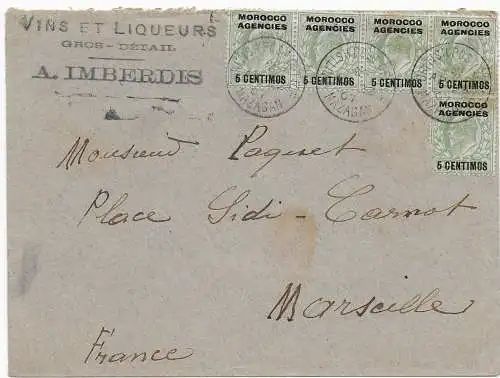 VINS ET LIQUEURS
GROS - DÉTAIL
A. IMBERDIS
MOROCCO AGENCIES
5 CENTIMOS
MOROCCO AGENCIES
5 CENTIMOS
MOROCCO AGENCIES
5 CENTIMOS
MOROCCO AGENCIES
5 CENTIMOS
MOROCCO AGENCIES
5 CENTIMOS
MAZAGAN
MAZAGAN
MAZAGAN
Monsieur Paquet
Place Sidi-Carnot
Marseille
France